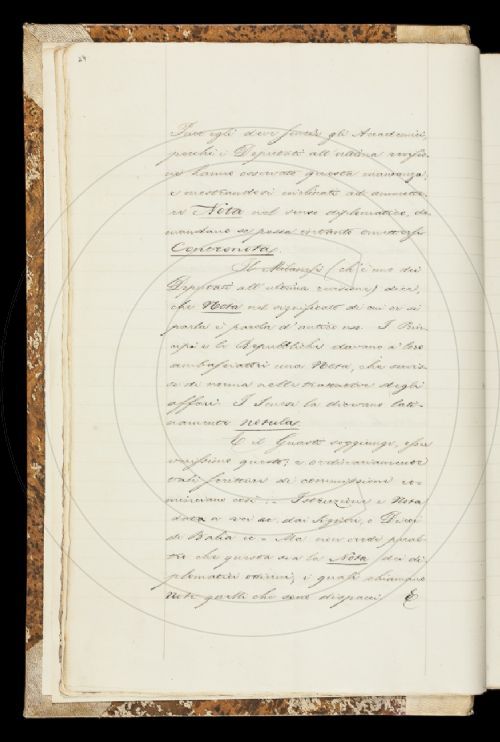 24
Fare egli deve scusa gli Accademici,
perchè i Deputati all'ultima revisio-
ne hanno osservato questa mancanza,
e mostrandosi inclinati ad ammette-
re Nota nel senso diplomatico, do-
mandano se possa intanto ometters
Contronota.
Il Milanesi (ch'è uno dei
Deputati all'ultima revisione) dice,
che Nota nel significato di cui or si
parla è parola d'antico uso. I Prin-
cipi e le Repubbliche davano a' loro
ambasciatori una Nota, che servis-
se di norma nelle trattative degli
affari. I Senesi la dicevano lati-
namente notula.
E il Guasti soggiunge, esser
verissimo questo; e ordinariamente
tali scritture di commissioni co-
minciano così: - Istruzione e Nota
data a voi ec. dai Signori, e Dieci
di Balìa ec - Ma non crede peral-
tro che questa sia la Nota dei di-
plomatici odierni, i quali chiamano
Note quelli che sono dispacci. E